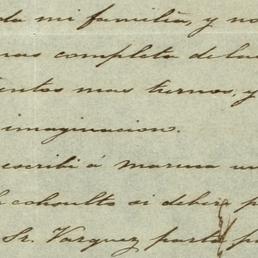 mi familia, y no
mas completa de las
mas tiernos, y
imaginacion.
escribi á maresa un
consulto si debera
Sr. Vazquez parta